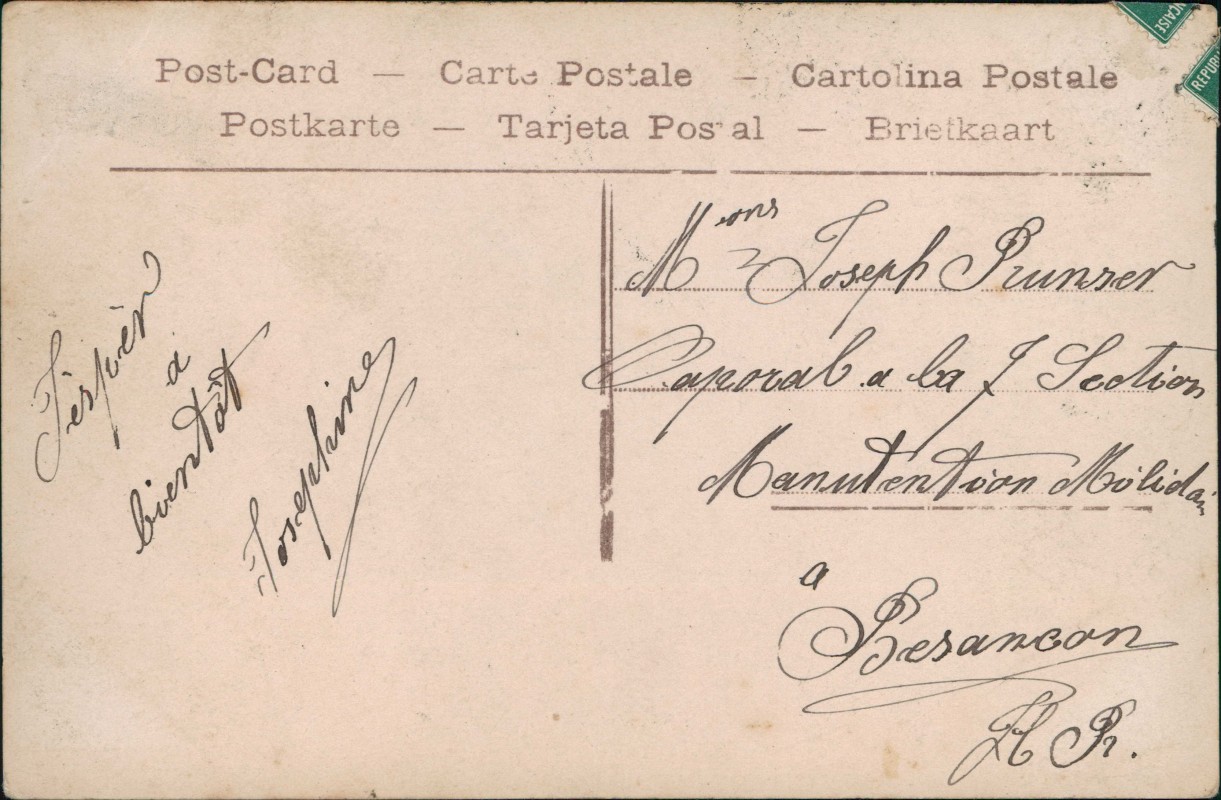 Post-Card — Carte Postale — Cartolina Postale
Postkarte — Tarjeta Postal — Briefkaart
ÇAISE
REPUB
J'espèr
a
bientôt
Josephine
Mons Joseph Prunser
Caporal a la 7 Section
Manutention Milidai
a
Besancon